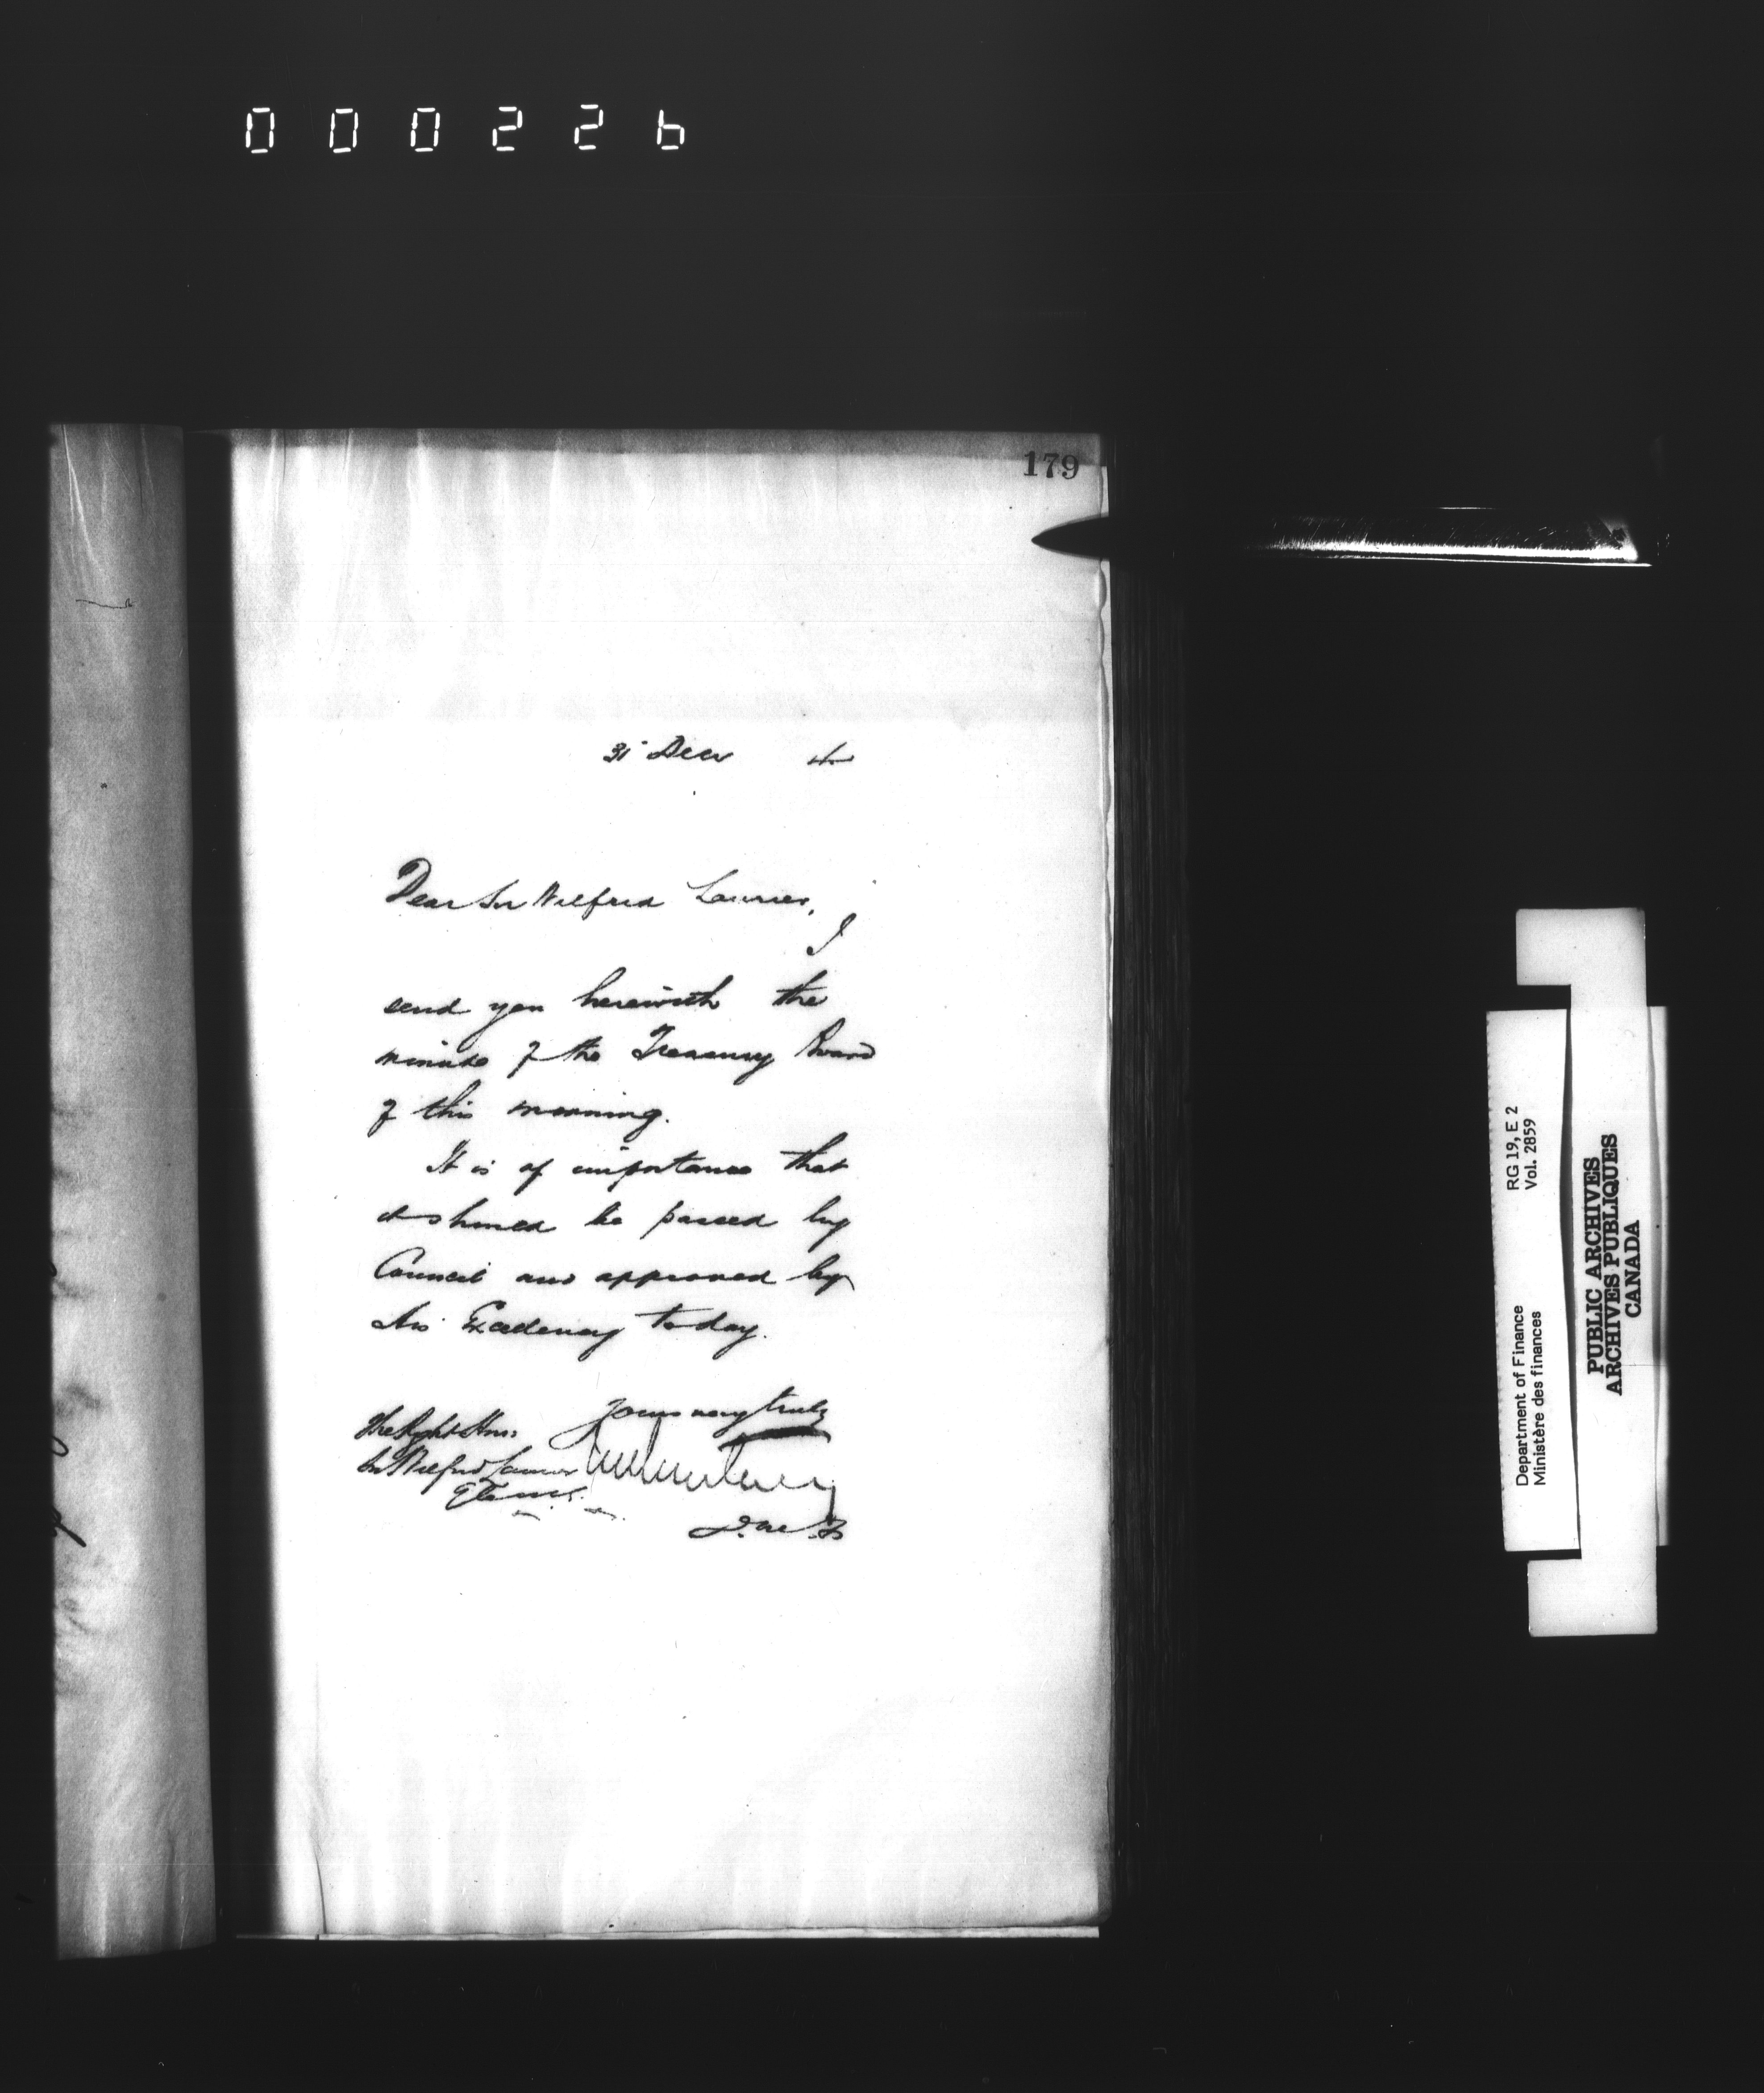 000226
179
31 Decr 4
Dear Sir Wilfrid Laurier,
I
send you herewith the
minute of the Treasury Board
of this morning.
It is of importance that
it should be passed by
Council and approved by
His Excellency today.
Yours very truly
The Right Hon:
Sir Wilfrid Laurier
RG 19, E 2
Vol. 2859
Department of Finance
Ministère des finances
PUBLIC ARCHIVES
ARCHIVES PUBLIQUES
CANADA